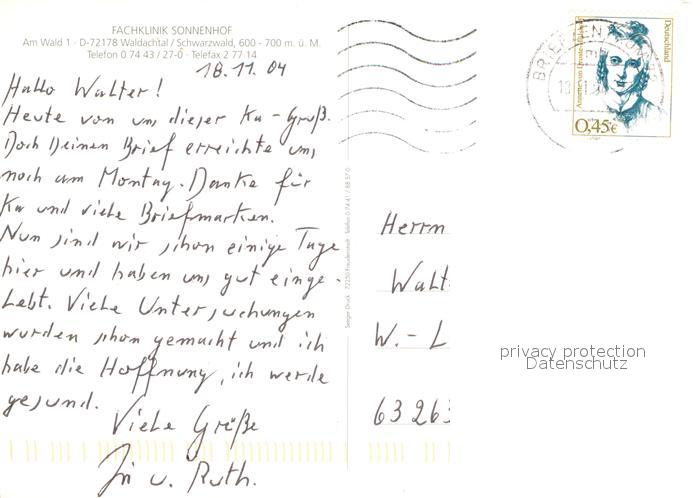 FACHKLINIK SONNENHOF
Am Wald 1 · D-72178 Waldachtal / Schwarzwald, 600 - 700 m. ü. M.
Telefon 0 74 43 / 27-0 · Telefax 2 77 14
18.11.04
Hallo Walter!
Heute von uns dieser Ka-Gruß.
Doch Deinen Brief erreichte uns
noch am Montag. Danke für
Ka und viele Briefmarken.
Nun sind wir schon einige Tage
hier und haben uns gut einge-
lebt. Viele Untersuchungen
wurden schon gemacht und ich
habe die Hoffnung, ich werde
gesund.
Viele Grüße
u. Ruth.
Seeger Druck · 72250 Freudenstadt · Telefon 0 74 41 / 88 57 0
BRIEFZENTRUM
Deutschland
Annette von Droste-Hülshoff
0,45€
Herrn
Walt
W.- L
63263
privacy protection
Datenschutz